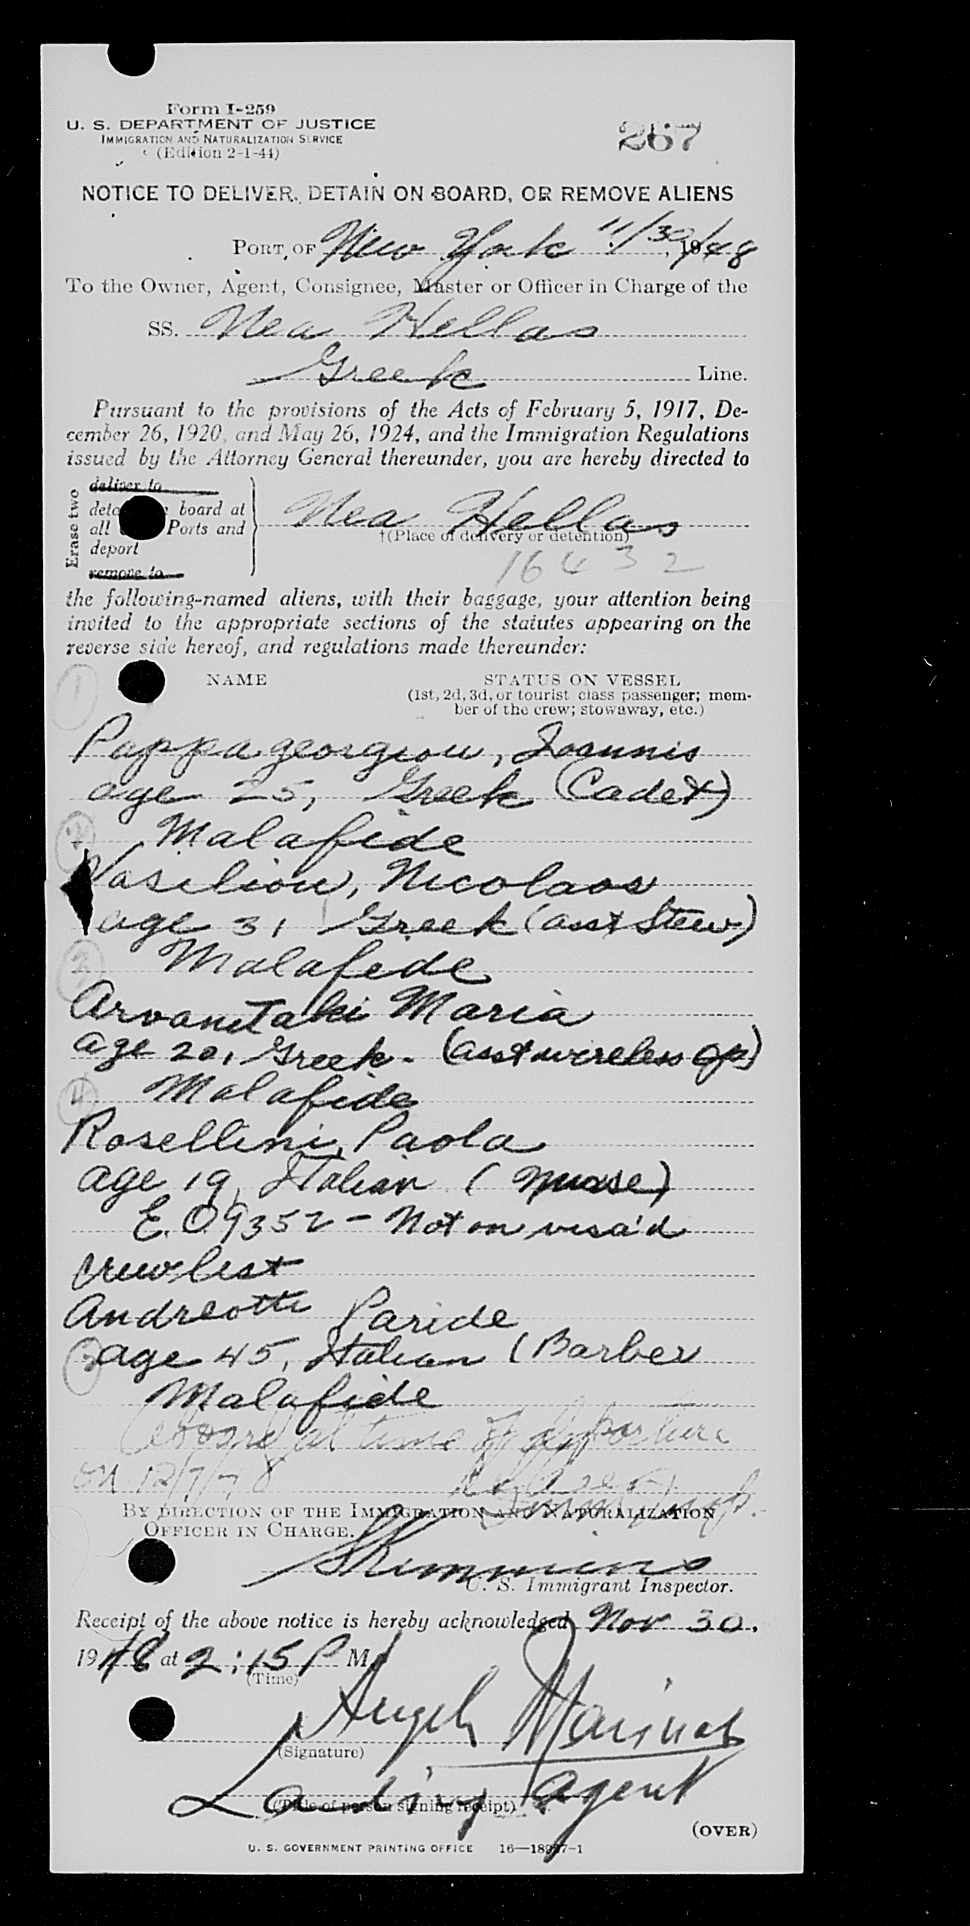 Form I-259
U. S. DEPARTMENT OF JUSTICE
IMMIGRATION AND NATURALIZATION SERVICE
(Edition 2-1-44)
267
NOTICE TO DELIVER, DETAIN ON BOARD, OR REMOVE ALIENS
PORT OF New York 11/30, 19 48
To the Owner, Agent, Consignee, Master or Officer in Charge of the
SS. Nea Hellas
Greek Line.
Pursuant to the provisions of the Acts of February 5, 1917, De-
cember 26, 1920, and May 26, 1924, and the Immigration Regulations
issued by the Attorney General thereunder, you are hereby directed to
Erase two
deliver to
board at
all Ports and
deport
remove to
Nea Hellas
†(Place of delivery or detention)
16432
the following-named aliens, with their baggage, your attention being
invited to the appropriate sections of the statutes appearing on the
reverse side hereof, and regulations made thereunder:
1
NAME STATUS ON VESSEL
(1st, 2d, 3d, or tourist class passenger; mem-
ber of the crew; stowaway, etc.)
Pappageorgiou, Ioannis
age 25, Greek (Cadet)
2 Malafide
Vasiliou, Nicolaos
age 31 Greek (asst Stew)
3 Malafide
Arvanetaki Maria
age 20, Greek - (asst wireless op)
4 Malafide
Rosellini, Paola
age 19, Italian (Nurse)
E.O 9352 - Not on visa'd
crew list
Andreotti Paride
5 age 45, Italian (Barber
Malafide
Aboard at time of departure
on 12/7/48
BY DIRECTION OF THE IMMIGRATION AND NATURALIZATION
OFFICER IN CHARGE.
Skimmins
U. S. Immigrant Inspector.
Receipt of the above notice is hereby acknowledged Nov 30,
1948 at 2:15 P M.
(Time)
Angel Marinos
(Signature)
Landing Agent
(Title of person signing receipt)
(OVER)
U. S. GOVERNMENT PRINTING OFFICE 16—18987-1